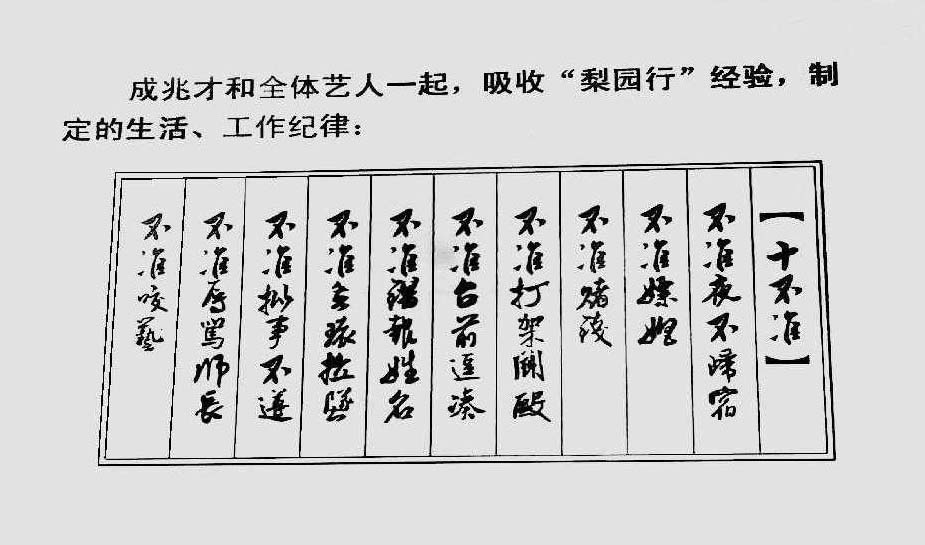 成兆才和全体艺人一起，吸收“梨园行”经验，制
定的生活、工作纪律：
【十不准】
不准夜不归宿
不准嫖娼
不准赌钱
不准打架闹殴
不准台前逗凑
不准谎报姓名
不准拉
不准拟事不遵
不准辱骂师长
不准咬艺